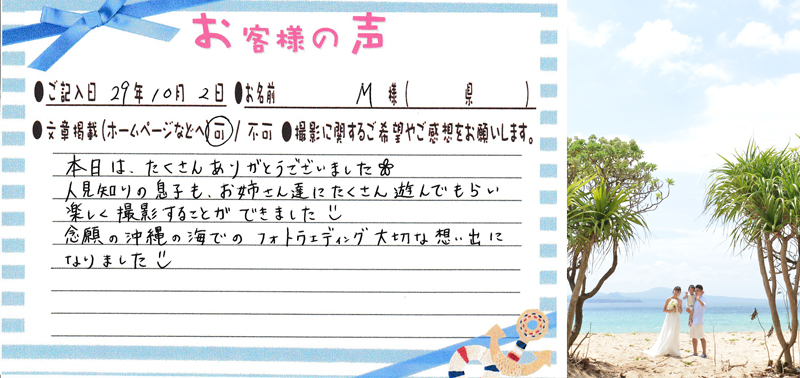 お客様の声
●ご記入日 29年10月2日 ●お名前 M 様( 県 )
●文章掲載(ホームページなどへ)可/不可 ●撮影に関するご希望やご感想をお願いします。
本日は、たくさんありがとうございました
人見知りの息子も、お姉さん達にたくさん遊んでもらい
楽しく撮影することができました
念願の沖縄の海でのフォトウエディング 大切な想い出に
なりました